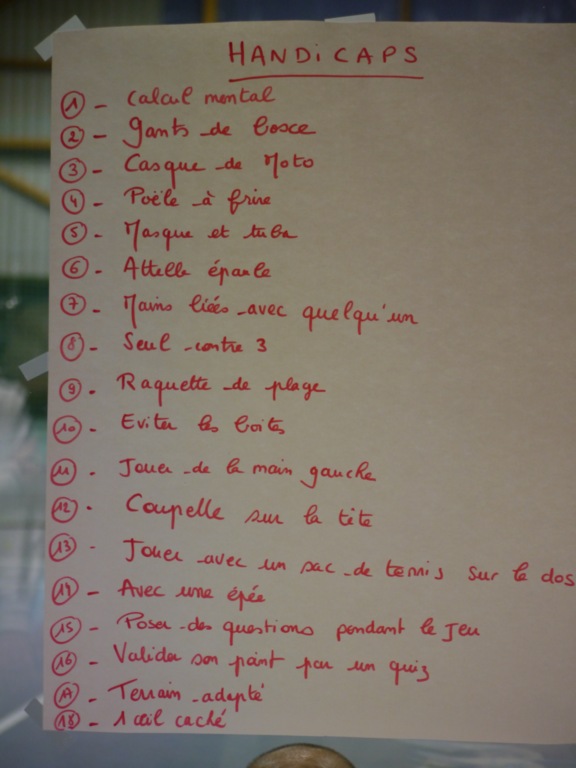 HANDICAPS
1 - Calcul mental
2 - gants de boxe
3 - Casque de Moto
4 - Poële à frire
5 - Masque et tuba
6 - Attelle épaule
7 - Mains liées avec quelqu'un
8 - Seul contre 3
9 - Raquette de plage
10 - Eviter les boites
11 - Jouer de la main gauche
12 - Coupelle sur la tête
13 - Jouer avec un sac de tennis sur le dos
14 - Avec une épée
15 - Poser des questions pendant le jeu
16 - Valider son point par un quiz
17 - Terrain adapté
18 - 1 œil caché